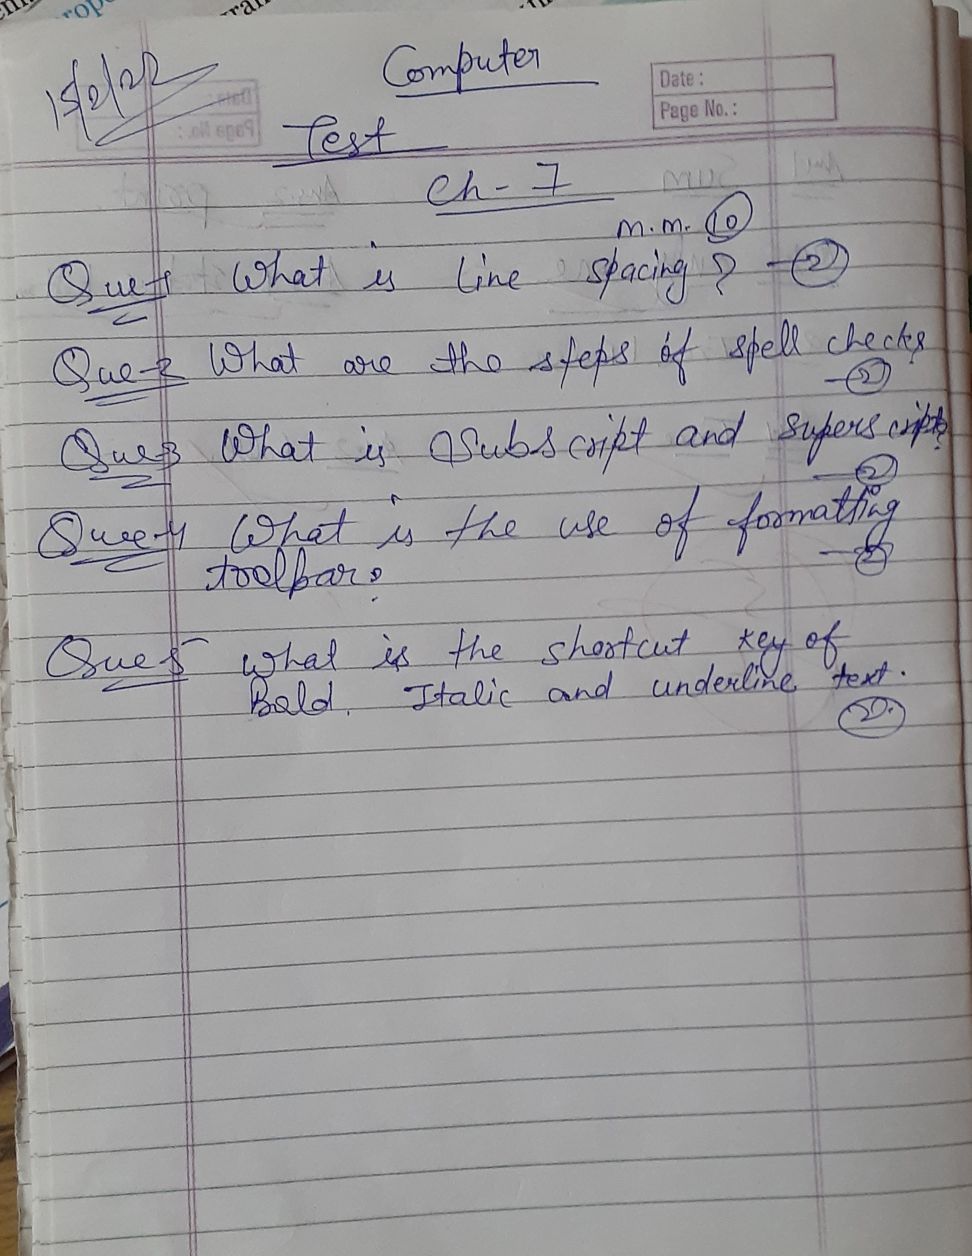 15/2/22
Computer
Date :
Page No. :
Test
Ch - 7
M.M. 10
Que-1 What is line spacing ? - 2
Que-2 What are the steps of spell check?
- 2
Que-3 What is Subscript and Superscript?
- 2
Que-4 What is the use of formatting
- 2
toolbar?
Que 5 What is the shortcut key of
Bold, Italic and underline text.
2